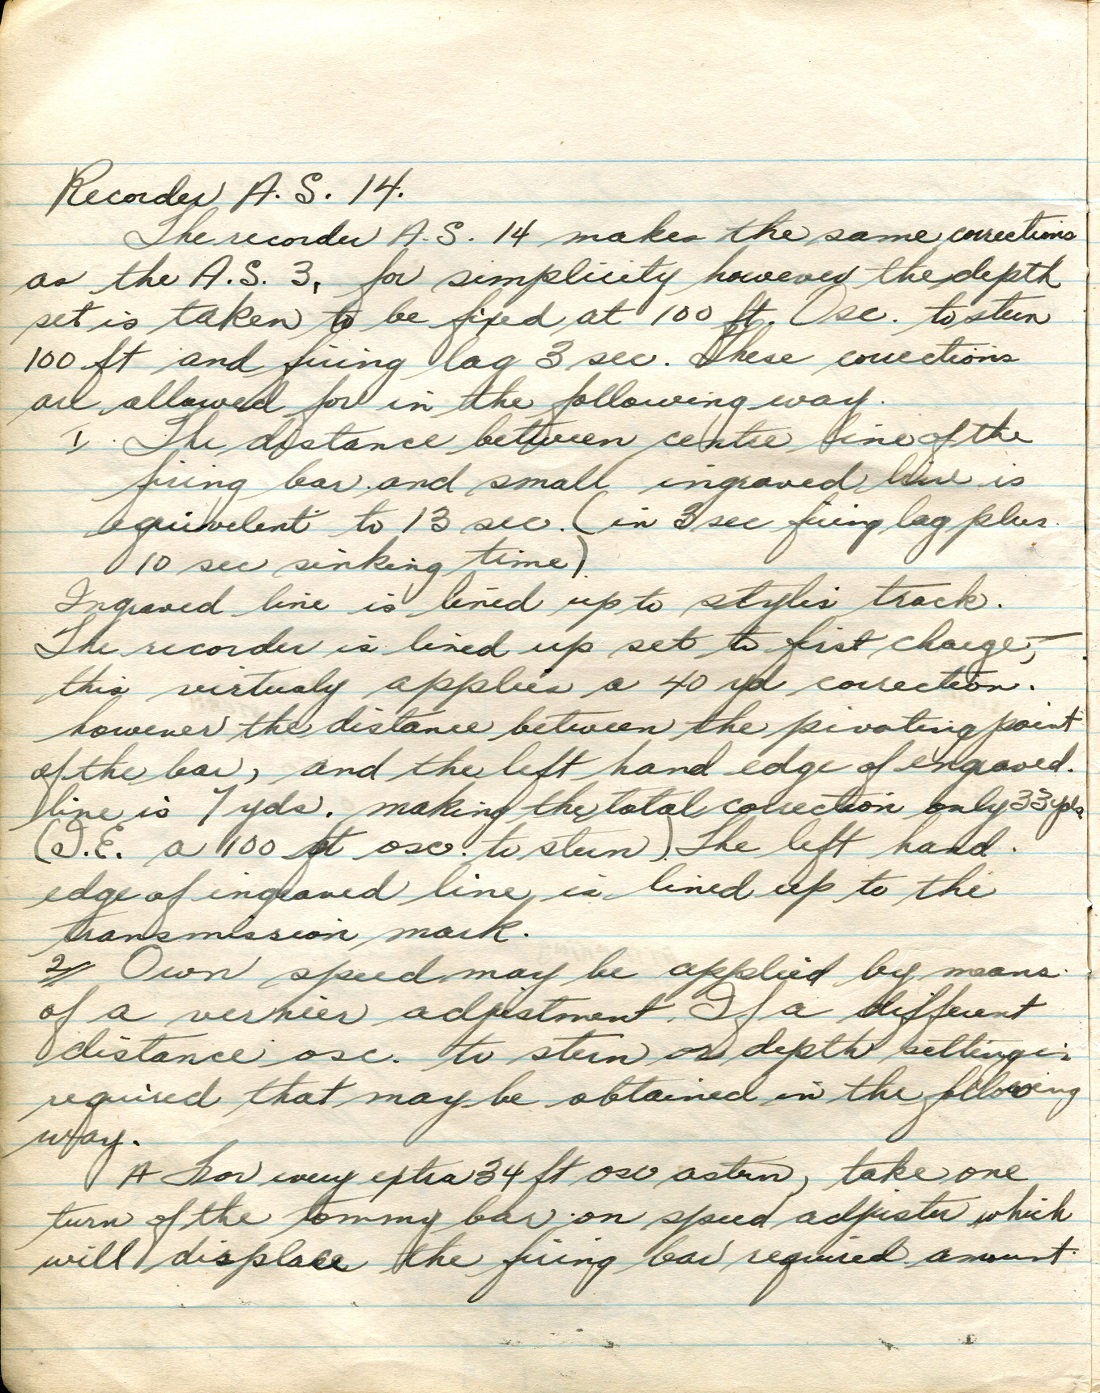 Recorder A.S. 14.
The recorder A.S. 14 makes the same corrections
as the A.S. 3, for simplicity however the depth
set is taken to be fixed at 100 ft. Osc. to stern
100 ft and firing lag 3 sec. These corrections
are allowed for in the following way.
1. The distance between centre line of the
firing bar and small ingraved line is
equivelent to 13 sec. (in 3 sec firing lag plus
10 sec sinking time)
Ingraved line is lined up to stylis track.
The recorder is lined up set to first charge,—
this virtualy applies a 40 yd correction.
however the distance between the pivoting point
of the bar, and the left hand edge of engraved.
line is 7 yds. making the total correction only 33 yds
(I.E. a 100 ft osc. to stern) The left hand.
edge of ingraved line, is lined up to the
transmission mark.
2// Own speed may be applied by means
of a vernier adjustment. If a different
distance osc. to stern or depth setting is
required that may be obtained in the following
way.
A For every extra 34 ft osc astern, take one
turn of the tommy bar on speed adjuster which
will displace the firing bar required amount